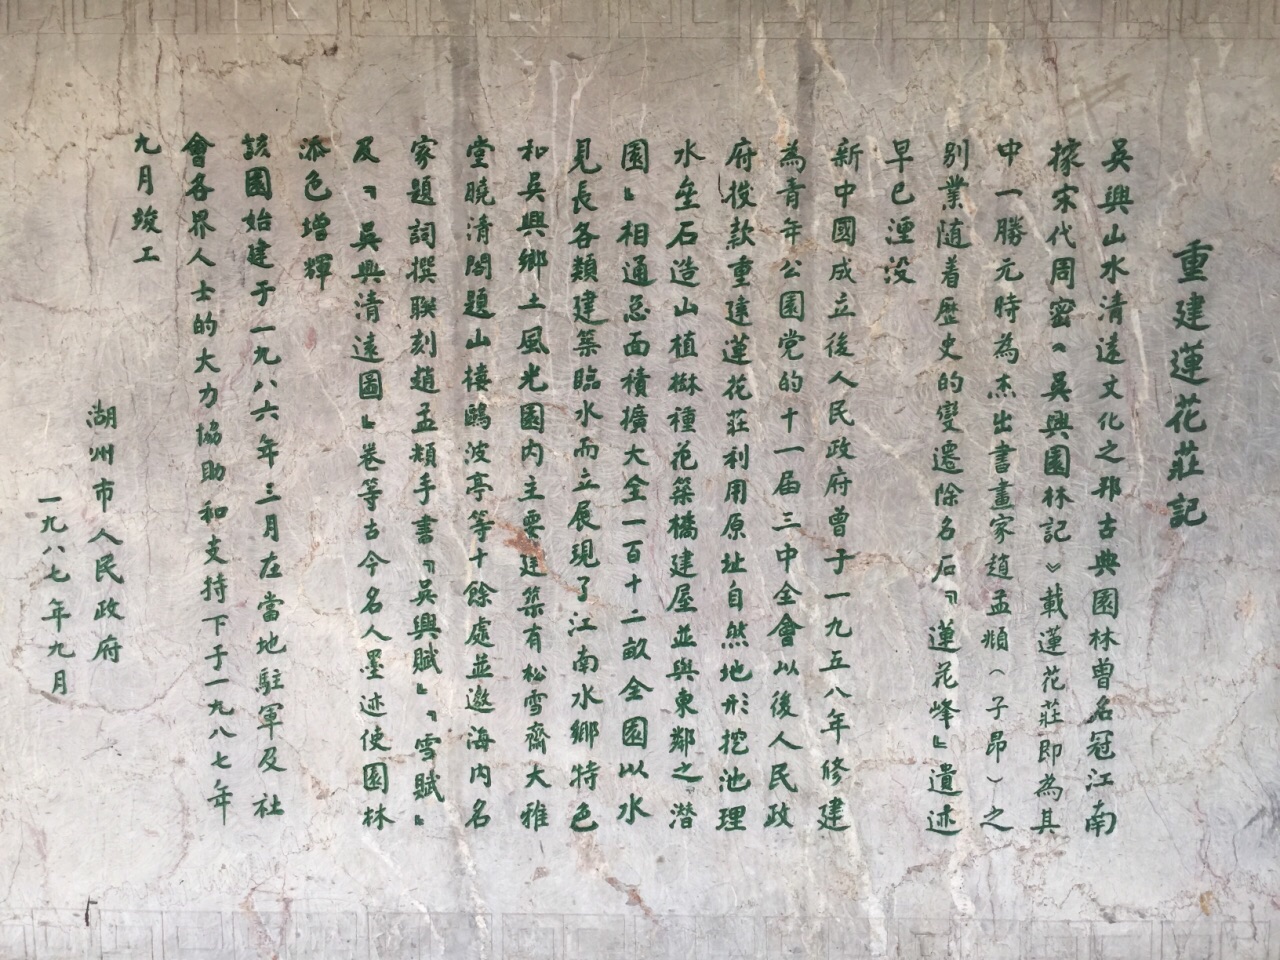 重建蓮花莊記
吳興山水清遠文化之邦古典園林曾名冠江南
據宋代周密《吳興園林記》載蓮花莊即為其
中一勝元時為杰出書畫家趙孟頫(子昂)之
別業随着歷史的變遷除名石『蓮花峰』遺迹
早已湮没
新中國成立後人民政府曾于一九五八年修建
為青年公園党的十一届三中全會以後人民政
府投款重建蓮花莊利用原址自然地形挖池理
水垒石造山植樹種花築橋建屋並與東鄰之『潜
園』相通总面積擴大全一百十二畝全園以水
見長各類建築臨水而立展現了江南水鄉特色
和吳興鄉土風光園内主要建築有松雪齋大雅
堂曉清閣題山楼鷗波亭等十餘處並邀海内名
家題詞撰联刻趙孟頫手書『吳興賦』『雪賦』
及『吳興清遠圖』卷等古今名人墨迹使園林
添色增輝
該園始建于一九八六年三月在當地駐軍及社
會各界人士的大力協助和支持下于一九八七年
九月竣工
湖州市人民政府
一九八七年九月